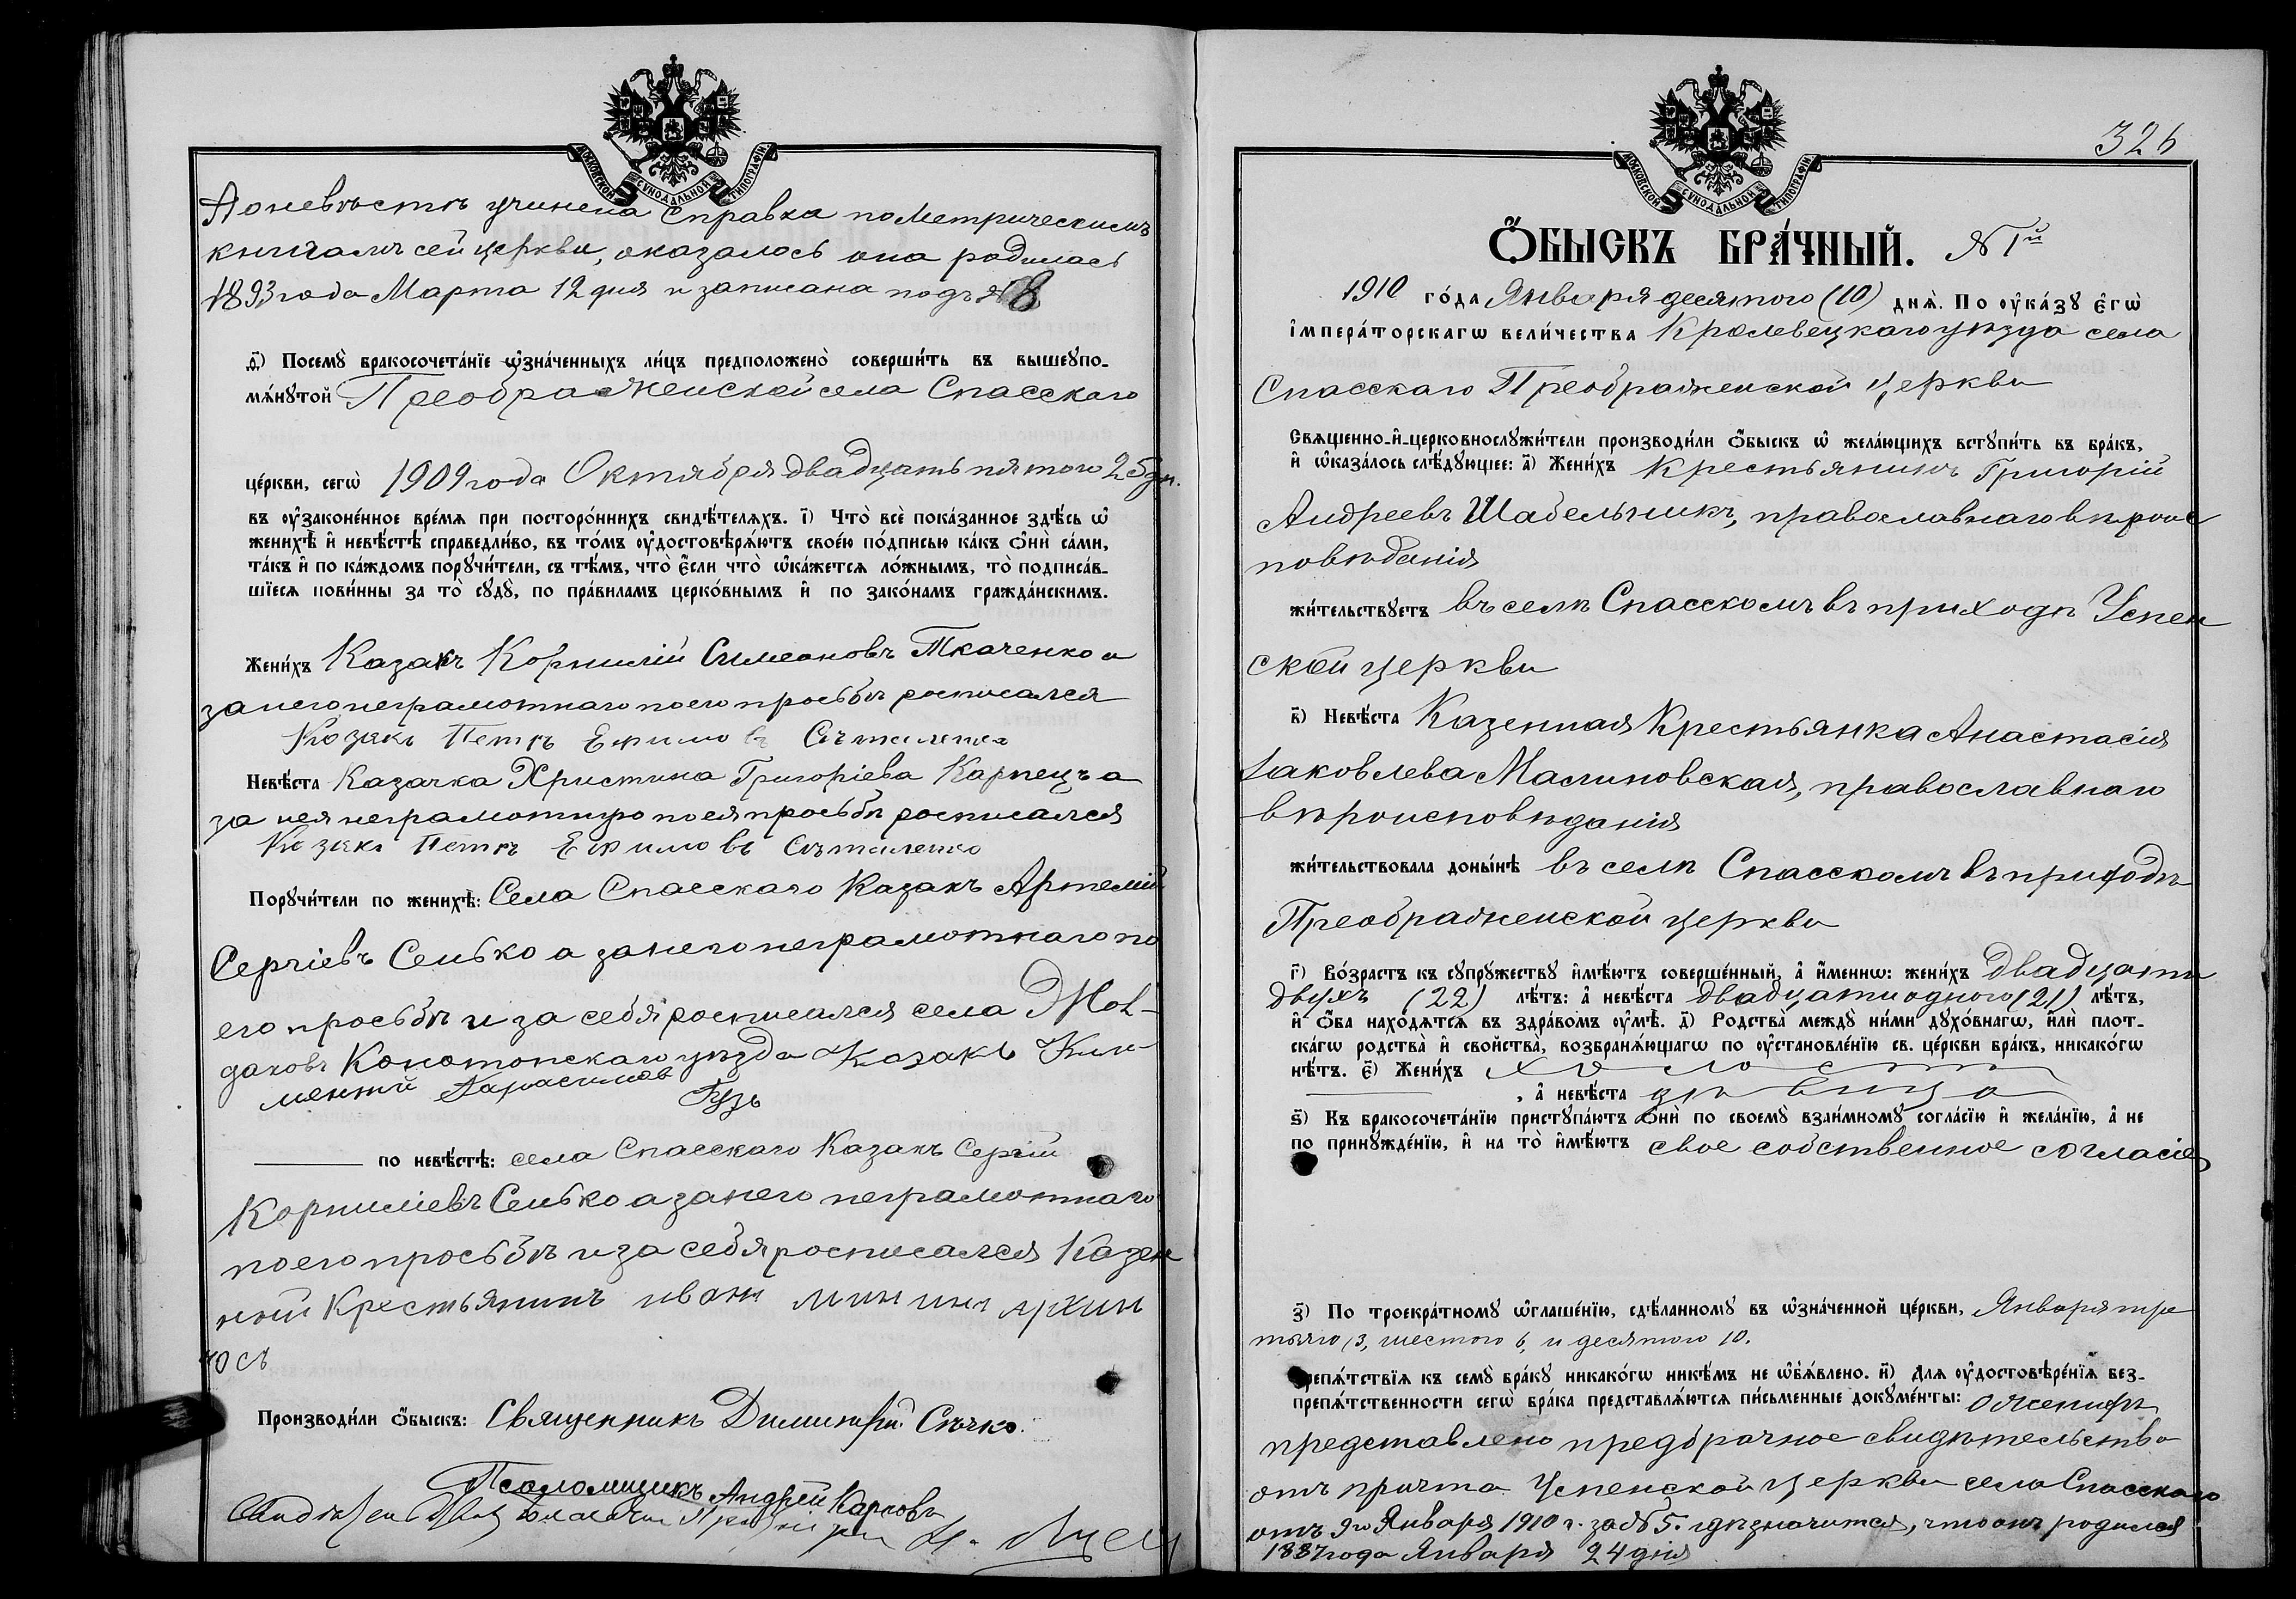 МОСКОВСКОЙ СУНОДАЛЬНОЙ ТИПОГРАФІИ
А о невѣстѣ учинена справка по метрическимъ
книгамъ сей церкви, оказалось она родилась
1893 года Марта 12 дня и записана подъ № 8
д҃) Посемꙋ̀ бракосочета́нїе ѡ҆зна́ченныхъ ли́цъ предположено̀ соверши́ть въ вышеꙋпо-
мѧ́нꙋтой Преображенской села Спасскаго
це́ркви, сегѡ̀ 1909 года Октября двадцать пятого 25 дн.
въ ᲂу҆законе́нное вре́мѧ при посторо́ннихъ свидѣ́телѧхъ. і҃) Что̀ всѐ пока́занное здѣ́сь ѡ҆
женихѣ̀ и҆ невѣ́стѣ справедли́во, въ то́мъ ᲂу҆достовѣрѧ́ютъ свое́ю по́дписью ка́къ ѻ҆нѝ са́ми,
та́къ и҆ по ка́ждомъ порꙋчи́тели, съ тѣ́мъ, что̀ є҆́сли что̀ ѡ҆ка́жетсѧ ло́жнымъ, то̀ подписа́в-
шїесѧ пови́нны за то̀ сꙋдꙋ̀, по пра́виламъ церко́внымъ и҆ по зако́намъ гражда́нскимъ.
Жени́хъ Казакъ Корнилій Симеоновъ Ткаченко а
за него неграмотнаго по его просьбѣ росписался
Козакъ Петръ Ефимовъ
Невѣ́ста Казачка Христина Григоріева Карпецъ а
за нея неграмотную по ея просьбѣ росписался
Козакъ Петръ Ефимовъ
Порꙋчи́тели по женихѣ̀: Села Спасскаго Казакъ Артемій
Сергіевъ Сенько а за него неграмотнаго по
его просьбѣ и за себя росписался села Жол-
даковъ Конотопскаго уѣзда Козакъ Кли-
ментій Гарасимов Гузь
по невѣ́стѣ: села Спасскаго Казакъ Сергій
Корниліевъ Сенько а за него неграмотнаго
по его просьбѣ и за себя росписался Казен
ный Крестьянинъ иванъ мининъ архин
Производи́ли ѻ҆́быскъ: Священникъ Димитрій Сѣчко.
Псаломщикъ Андрей Карповъ
326
МОСКОВСКОЙ СУНОДАЛЬНОЙ ТИПОГРАФІИ
Ѻ҆́БЫСКЪ БРА́ЧНЫЙ. № 1й
1910 го́да Января десятого (10) днѧ̀. По ᲂу҆ка́зꙋ є҆гѡ̀
і҆мпера́торскагѡ вели́чества Кролевецкаго уѣзда села
Спасскаго Преображенской церкви
Свѧще́нно-и҆-церковнослꙋжи́тели производи́ли ѻ҆́быскъ ѡ҆ жела́ющихъ встꙋпи́ть въ бра́къ,
и҆ ѡ҆каза́лось слѣ́дꙋющее: а҃) Жени́хъ Крестьянинъ Григорій
Андреевъ Шабельникъ, православнаго вѣроис
повѣданія
жи́тельствꙋетъ въ селѣ Спасскомъ въ приходѣ Успен
ской церкви
в҃) Невѣ́ста Казенная Крестьянка Анастасія
Іаковлева Малиновская, православнаго
вѣроисповѣданія
жи́тельствовала донынѣ въ селѣ Спасскомъ въ приходѣ
Преображенской церкви
г҃) Во́зрастъ къ сꙋпрꙋжествꙋ и҆мѣ́ютъ соверше́нный, а҆ и҆́меннѡ: жени́хъ двадцати
двухъ (22) лѣ́тъ: а҆ невѣ́ста двадцати одного (21) лѣ́тъ,
и҆ ѻ҆́ба нахо́дѧтсѧ въ здра́вомъ ᲂу҆мѣ̀. д҃) Родства̀ междꙋ̀ ни́ми дꙋхо́внагѡ, и҆лѝ плот-
ска́гѡ родства̀ и҆ свойства̀, возбранѧ́ющагѡ по ᲂу҆становле́нїю св. це́ркви бра́къ, никако́гѡ
нѣ́тъ. є҃) Жени́хъ холостъ
, а҆ невѣ́ста дѣвица
ѕ҃) Къ бракосочета́нїю пристꙋпа́ютъ ѻ҆нѝ по своемꙋ̀ взаи́мномꙋ согла́сїю и҆ жела́нїю, а҆ не
по принꙋжде́нїю, и҆ на то̀ и҆мѣ́ютъ свое собственное согласіе
з҃) По троекра́тномꙋ ѡ҆глаше́нїю, сдѣ́ланномꙋ въ ѡ҆зна́ченной це́ркви, Января тре
тьяго, 3, шестого 6, и десятого 10.
препѧ́тствїѧ къ семꙋ̀ бра́кꙋ никако́гѡ никѣ́мъ не ѡ҆б̾ѧ́влено. и҃) Длѧ ᲂу҆достовѣре́нїѧ без-
препѧ́тственности сегѡ̀ бра́ка представлѧ́ютсѧ пи́сьменные докꙋме́нты: О женихѣ
представлено предбрачное свидѣтельство
отъ причта Успенской церкви села Спасскаго
отъ 9го Января 1910 г. за № 5. гдѣ значится, что онъ родился
1887 года Января 24 дня